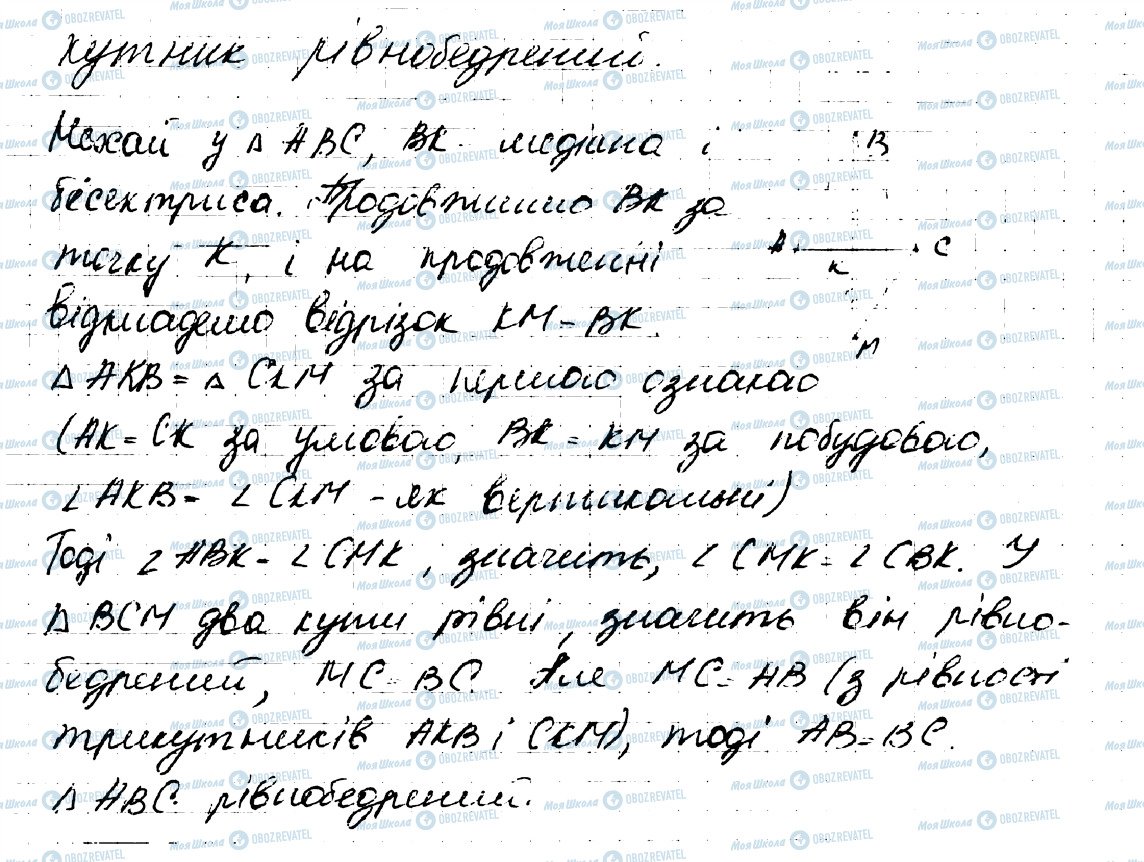 кутник рівнобедрений.
Нехай у △ ABC, BK медіана і
бісектриса. Продовжимо BK за
точку K, і на продовженні
відкладемо відрізок KM = BK.
△ AKB = △ CKM за першою ознакою
(AK = CK за умовою, BK = KM за побудовою,
∠ AKB = ∠ CKM - як вертикальні)
Тоді ∠ ABK = ∠ CMK, значить, ∠ CMK = ∠ CBK. У
△ BCM два кути рівні, значить він рівно-
бедрений, MC = BC. Але MC = AB (з рівності
трикутників AKB і CKM), тоді AB = BC.
△ ABC рівнобедрений.
B
A
C
K
M
Моя Школа OBOZREVATEL